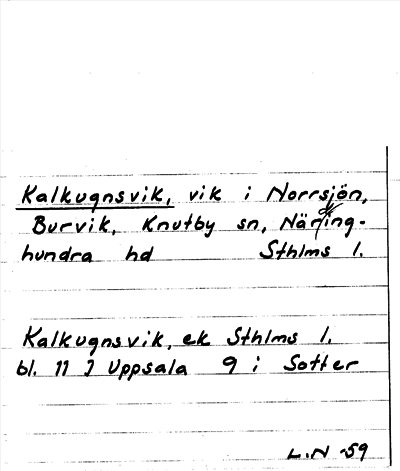 Kalkugnsvik, vik i Norrsjön,
Burvik, Knutby sn, Närding-
hundra hd Sthlms l.
Kalkugnsvik, ek Sthlms l.
bl. 11 J Uppsala 9 i Sotter
L.N -59